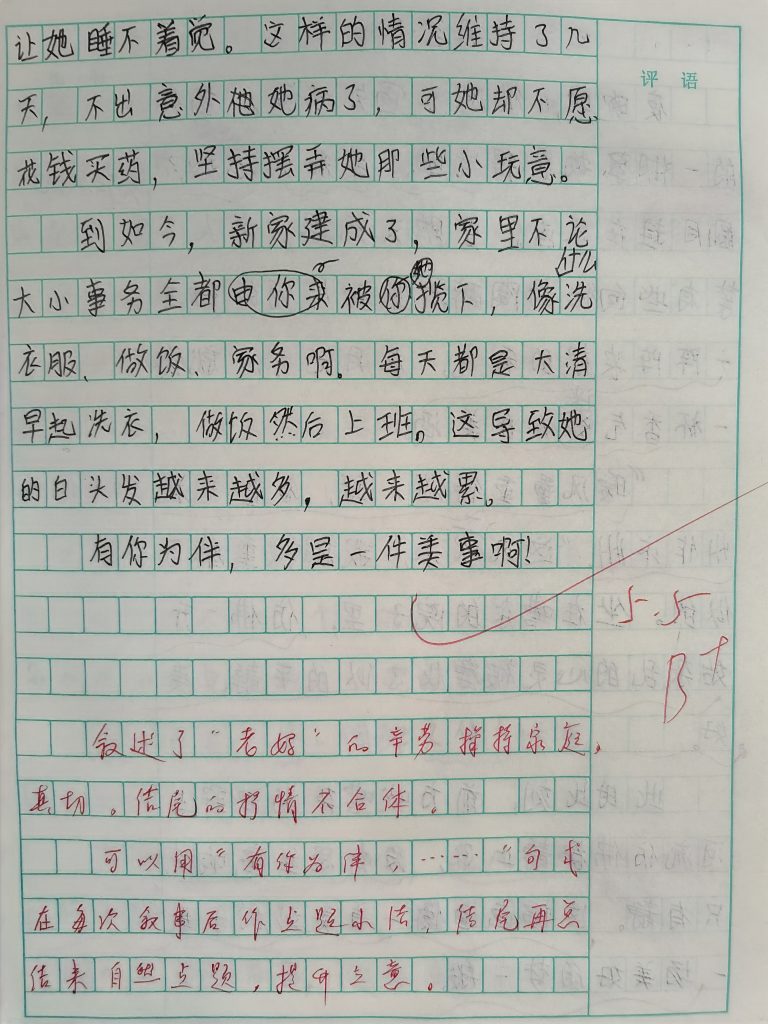 让她睡不着觉。这样的情况维持了几
评语
天，不出意外她病了，可她却不愿
花钱买药，坚持摆弄她那些小玩意。
到如今，新家建成了，家里不论
什么
大小事务全都由你来被她揽下，像洗
衣服、做饭、家务啊。每天都是大清
早起洗衣，做饭然后上班。这导致她
的白头发越来越多，越来越累。
有你为伴，多是一件美事啊！
5.5
B+
叙述了“老妈”的辛劳操持家庭，
真切。结尾的抒情不合体。
可以用“有你为伴，……”句式
在每次叙事后作点题小法，结尾再总
结来自然点题，提升立意。